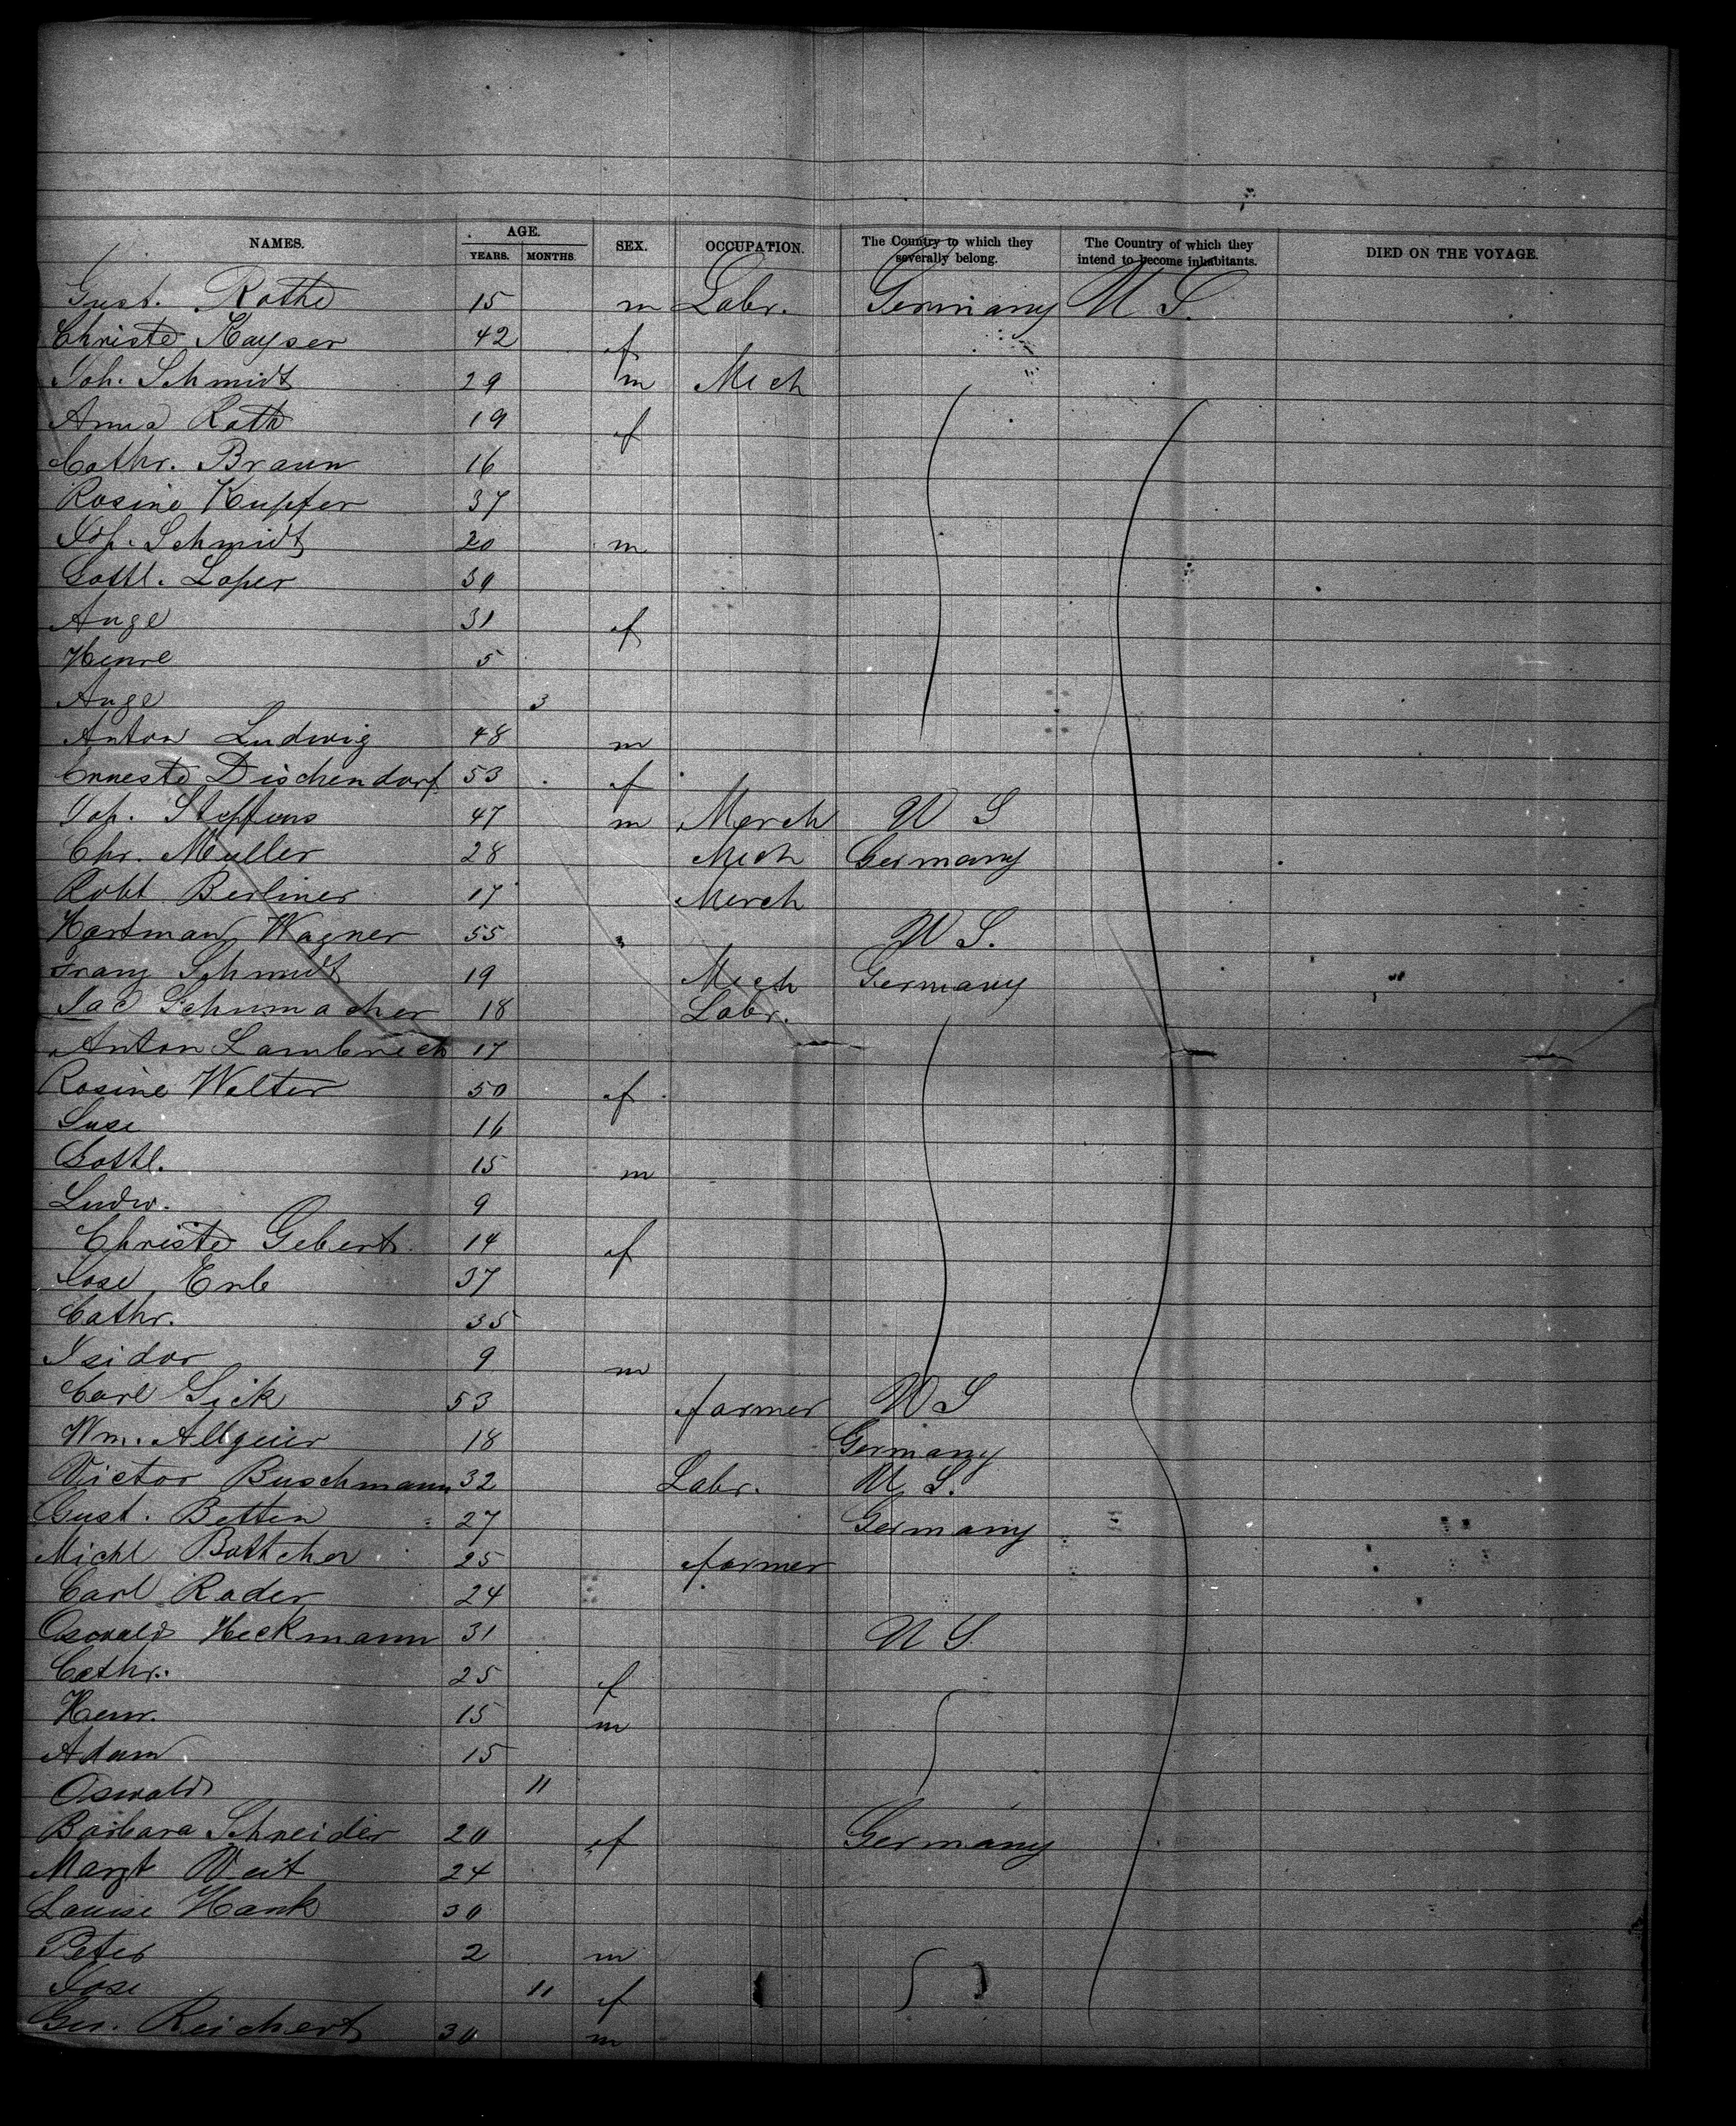 NAMES. AGE. SEX. OCCUPATION. The Country to which they severally belong. The Country of which they intend to become inhabitants. DIED ON THE VOYAGE.
YEARS. MONTHS.
Gust. Rothe 15 m Labr. Germany U S.
Christe Kayser 42 f
Joh. Schmidt 29 m Mech
Anna Roth 19 f
Cathr. Braun 16
Rosine Kupfer 37
Jos. Schmidt 20 m
Gottl. Loper 30
Auge 31 f
Henre 5
Auge 3
Anton Ludwig 48 m
Erneste Dischendorf 53 f
Joh. Steffens 47 m Merch U S
Chr. Muller 28 Mech Germany
Robt Berliner 17 Merch
Hartman Wagner 55 U S.
Franz Schmidt 19 Mech Germany
Jac Schumacher 18 Labr.
Anton Lambrech 17
Rosine Walter 50 f
Suse 16
Gottl. 15 m
Ludw. 9
Christe Gebert 14 f
Jose Erle 37
Cathr. 35
Isidor 9 m
Carl Gick 53 farmer U S
Wm. Allgeier 18 Germany
Victor Buschmann 32 Labr. U S.
Gust. Betten 27 Germany
Michl Bottcher 25 farmer
Carl Rader 24
Oswald Heckmann 31 U S
Cathr. 25 f
Henr. 15 m
Adam 15
Oswald 11
Barbara Schneider 20 f Germany
Margt Veit 24
Louise Hank 30
Peter 2 m
Jose 11 f
Geo. Reichert 30 m